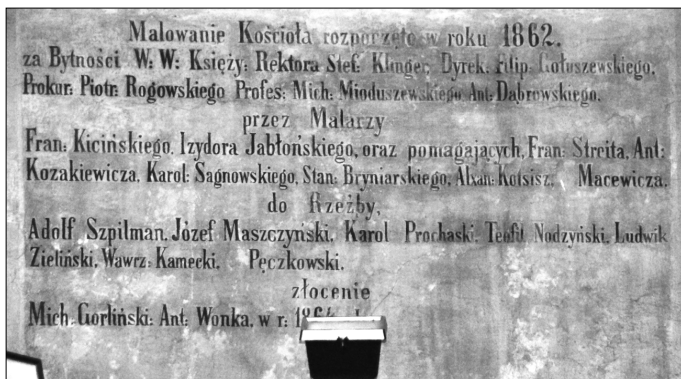 Malowanie Kościoła rozpoczęto w roku 1862.
za Bytności W: W: Księży: Rektora Stef: Klinger, Dyrek: Filip: Gołuszewskiego,
Prokur: Piotr: Rogowskiego Profes: Mich: Mioduszewskiego Ant: Dąbrowskiego,
przez Malarzy
Fran: Kicińskiego, Izydora Jabłońskiego, oraz pomagających, Fran: Streita, Ant:
Kozakiewicza, Karol: Sagnowskiego, Stan: Bryniarskiego, Alxan: Kotsisz, Macewicza,
do Rzeźby,
Adolf Szpilman, Józef Maszczyński, Karol Prochaski, Teofil Nodzyński, Ludwik
Zieliński, Wawrz: Kamecki, Pęczkowski,
złocenie
Mich: Gorliński: Ant: Wonka, w r: